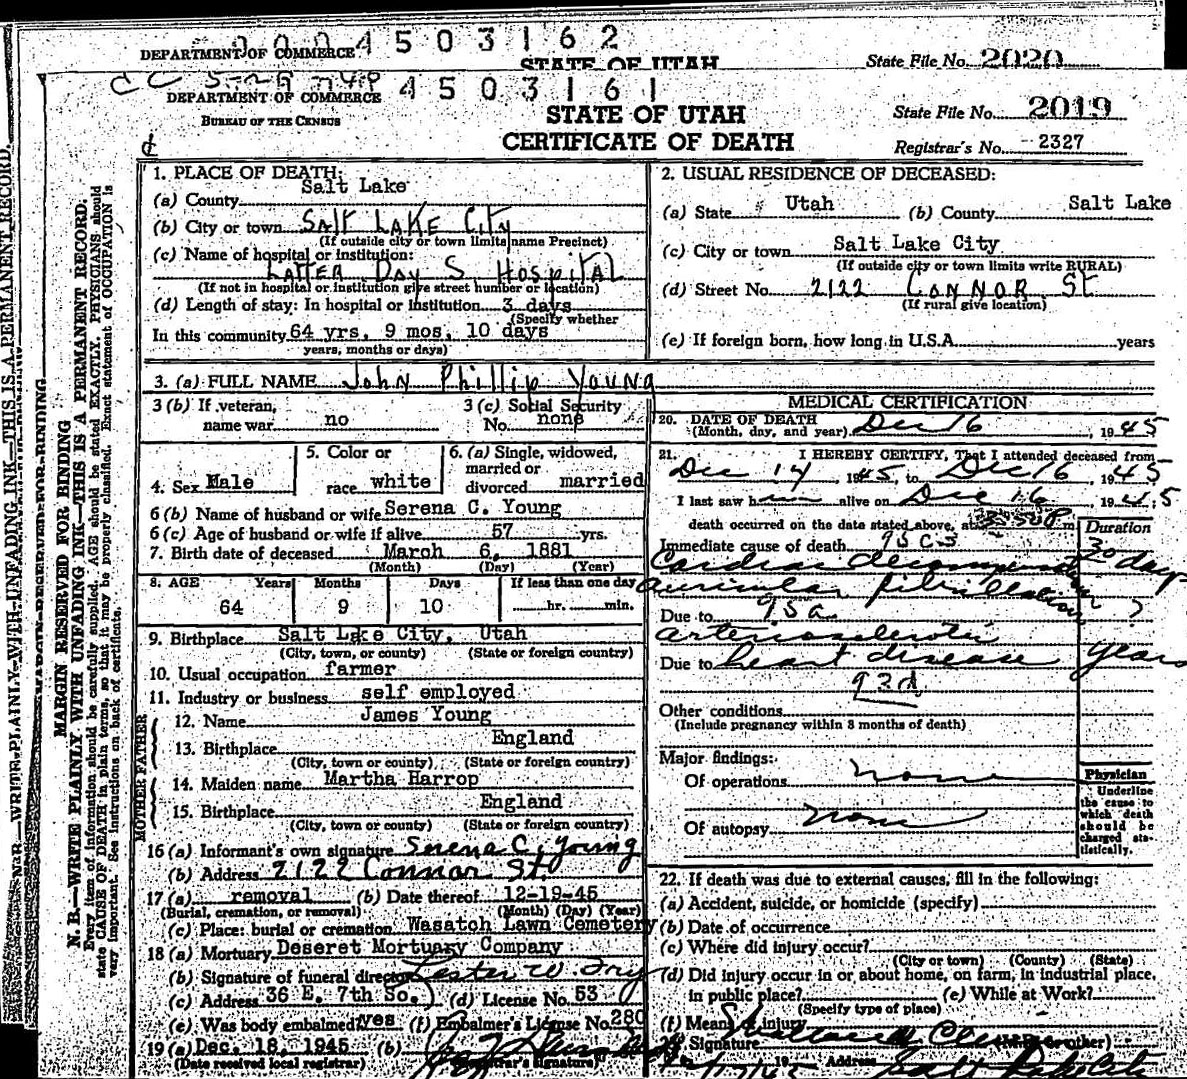 DEPARTMENT OF COMMERCE 4 5 0 3 1 6 2
STATE OF UTAH
State File No. 2020
DEPARTMENT OF COMMERCE 4 5 0 3 1 6 1
BUREAU OF THE CENSUS
STATE OF UTAH
CERTIFICATE OF DEATH
State File No. 2019
Registrar's No. 2327
N. B.—WRITE PLAINLY WITH UNFADING INK—THIS IS A PERMANENT RECORD.
MARGIN RESERVED FOR BINDING
MARGIN RESERVED FOR BINDING
N. B.—WRITE PLAINLY WITH UNFADING INK—THIS IS A PERMANENT RECORD.
Every item of information should be carefully supplied. AGE should be stated EXACTLY. PHYSICIANS should
state CAUSE OF DEATH in plain terms, so that it may be properly classified. Exact statement of OCCUPATION is
very important. See instructions on back of certificate.
1. PLACE OF DEATH:
(a) County Salt Lake
(b) City or town SALT LAKE City
(If outside city or town limits name Precinct)
(c) Name of hospital or institution:
LATTER DAY S HOSPITAL
(If not in hospital or institution give street number or location)
(d) Length of stay: In hospital or institution 3 days
(Specify whether
In this community 64 yrs. 9 mos. 10 days
years, months or days)
2. USUAL RESIDENCE OF DECEASED:
(a) State Utah (b) County Salt Lake
(c) City or town Salt Lake City
(If outside city or town limits write RURAL)
(d) Street No. 2122 CONNOR ST
(If rural give location)
(e) If foreign born, how long in U.S.A. years
3. (a) FULL NAME John Phillip Young
3 (b) If veteran, name war no
3 (c) Social Security No. none
4. Sex Male
5. Color or race white
6. (a) Single, widowed, married or divorced married
6 (b) Name of husband or wife Serena C. Young
6 (c) Age of husband or wife if alive 57 yrs.
7. Birth date of deceased March 6, 1881
(Month) (Day) (Year)
8. AGE Years Months Days If less than one day
64 9 10 hr. min.
9. Birthplace Salt Lake City, Utah
(City, town, or county) (State or foreign country)
10. Usual occupation farmer
11. Industry or business self employed
FATHER
12. Name James Young
13. Birthplace England
(City, town or county) (State or foreign country)
MOTHER
14. Maiden name Martha Harrop
15. Birthplace England
(City, town or county) (State or foreign country)
16 (a) Informant's own signature Serena C. Young
(b) Address 2122 Connor St.
17 (a) removal (b) Date thereof 12-19-45
(Burial, cremation, or removal) (Month) (Day) (Year)
(c) Place: burial or cremation Wasatch Lawn Cemetery
18 (a) Mortuary Deseret Mortuary Company
(b) Signature of funeral director Lester W. Fry
(c) Address 36 E. 7th So. (d) License No. 53
(e) Was body embalmed? yes (f) Embalmer's License No. 280
19 (a) Dec. 18, 1945 (b)
(Date received local registrar) (Registrar's signature)
MEDICAL CERTIFICATION
20. DATE OF DEATH
(Month, day, and year) Dec 16, 1945
21. I HEREBY CERTIFY, That I attended deceased from
Dec 14 1945, to Dec 16, 1945
I last saw him alive on Dec 16 1945;
death occurred on the date stated above, at m. Duration
Immediate cause of death 95 c.3
Cardiac decompensation 30 days
auricular fibrillation ?
Due to 95a
arteriosclerotic
Due to heart disease years
93d
Other conditions
(Include pregnancy within 3 months of death)
Major findings:
Of operations none
Of autopsy none
Physician
Underline the cause to which death should be charged statistically.
22. If death was due to external causes, fill in the following:
(a) Accident, suicide, or homicide (specify)
(b) Date of occurrence
(c) Where did injury occur?
(City or town) (County) (State)
(d) Did injury occur in or about home, on farm, in industrial place,
in public place? (e) While at Work?
(Specify type of place)
(f) Means of injury
Signature (M.D. or other)
12/17/45 Address Salt Lake City